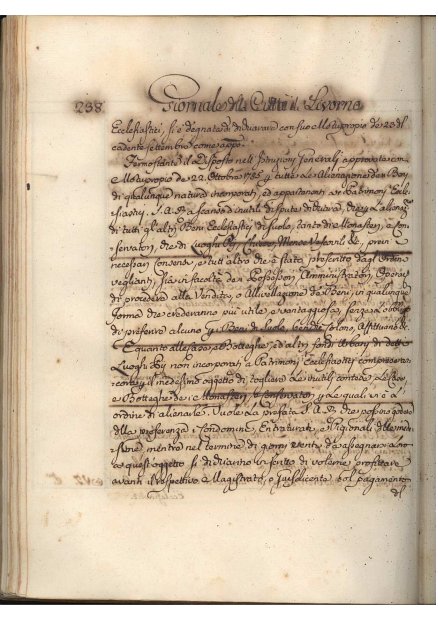 238 Giornale della Città di Livorno
Ecclesiastici, si è degnata di dichiarare con suo Motuproprio de 23 del
cadente settembre come appo
Fermo stante il Disposto nell' Istruzioni Generali approvate con
Motuproprio de 22 Ottobre 1785 tutte le Alienazioni dei Beni
di qualunque natura incorporati, ed appartenenti ai Patrimoni Eccle=
siastici S.A.R. a scanso d'inutili dispute dichiara, che
di tutti gl'altri Beni Ecclesiastici di suolo, tanto di Monasteri, e Con=
servatori, che di Luoghi Pii, Chiese, Mense Vescovili &c. previ
i necessari consensi, e tutt' altro che è stato prescritto dagl' Ordini
veglianti, sia in facoltà dei Possessori, Amministratori, Operai
di procedere alla Vendita, o Allivellazione dei Beni in qualunque
forma che crederanno più utile, e vantaggiosa, senza obbligo
di preferire alcuno Beni di suolo, Colono, Affittuario &c.
E quanto alle Case, e Botteghe, ed altri fondi Urbani di detti
Luoghi Pii non incorporati a Patrimoni Ecclesiastici
il medesimo oggetto di togliere le inutili contese
e Botteghe dei Monasteri, e Conservatori le quali vi è l'
ordine di alienare, Vuole la prefata S.A.R. che possino godere
della preferenza i Condomini, Entraturati, e Pigionali delle mede=
sime mentre nel termine di giorni venti da assegnarsi a loro
a quest' oggetto si dichiarino in scritto di volerne profittare
avanti il respettivo Magistrato, o Giusdicente col pagamento
del